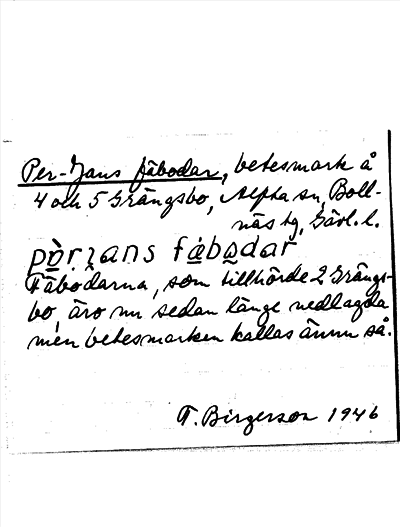 Per-Jans fäbodar, betesmark å
4 och 5 Grängsbo, Alfta sn, Boll-
näs tg, Gävl. l.
pòr̥ jan̥s fá̤bo̤dar
Fäbodarna, som tillhörde 2 Grängs-
bo, äro nu sedan länge nedlagda
men betesmarken kallas ännu så.
T. Birgerson 1946